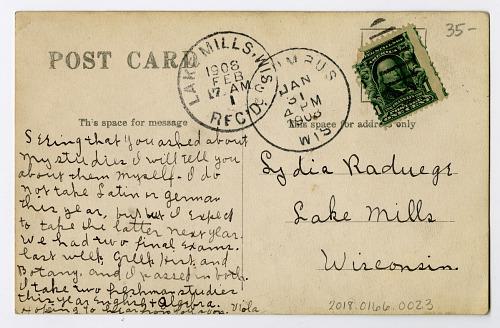 35-
POST CARD
LAKE MILLS, WIS.
1908
FEB
1
7 AM
REC'D.
COLUMBUS
JAN
31
4 PM
1908
WIS
This space for message
This space for address only
Seeing that you asked about
my studies I will tell you
about them myself. I do
not take Latin or german
this year, but I expect
to take the latter next year.
We had two final exams.
last week, Greek Hist. and
Botany, and I passed in both.
I take two freshman studies
this year English & Algebra.
Hoping to hear from you soon. Viola
Lydia Raduege
Lake Mills
Wisconsin
2018.0166.0023